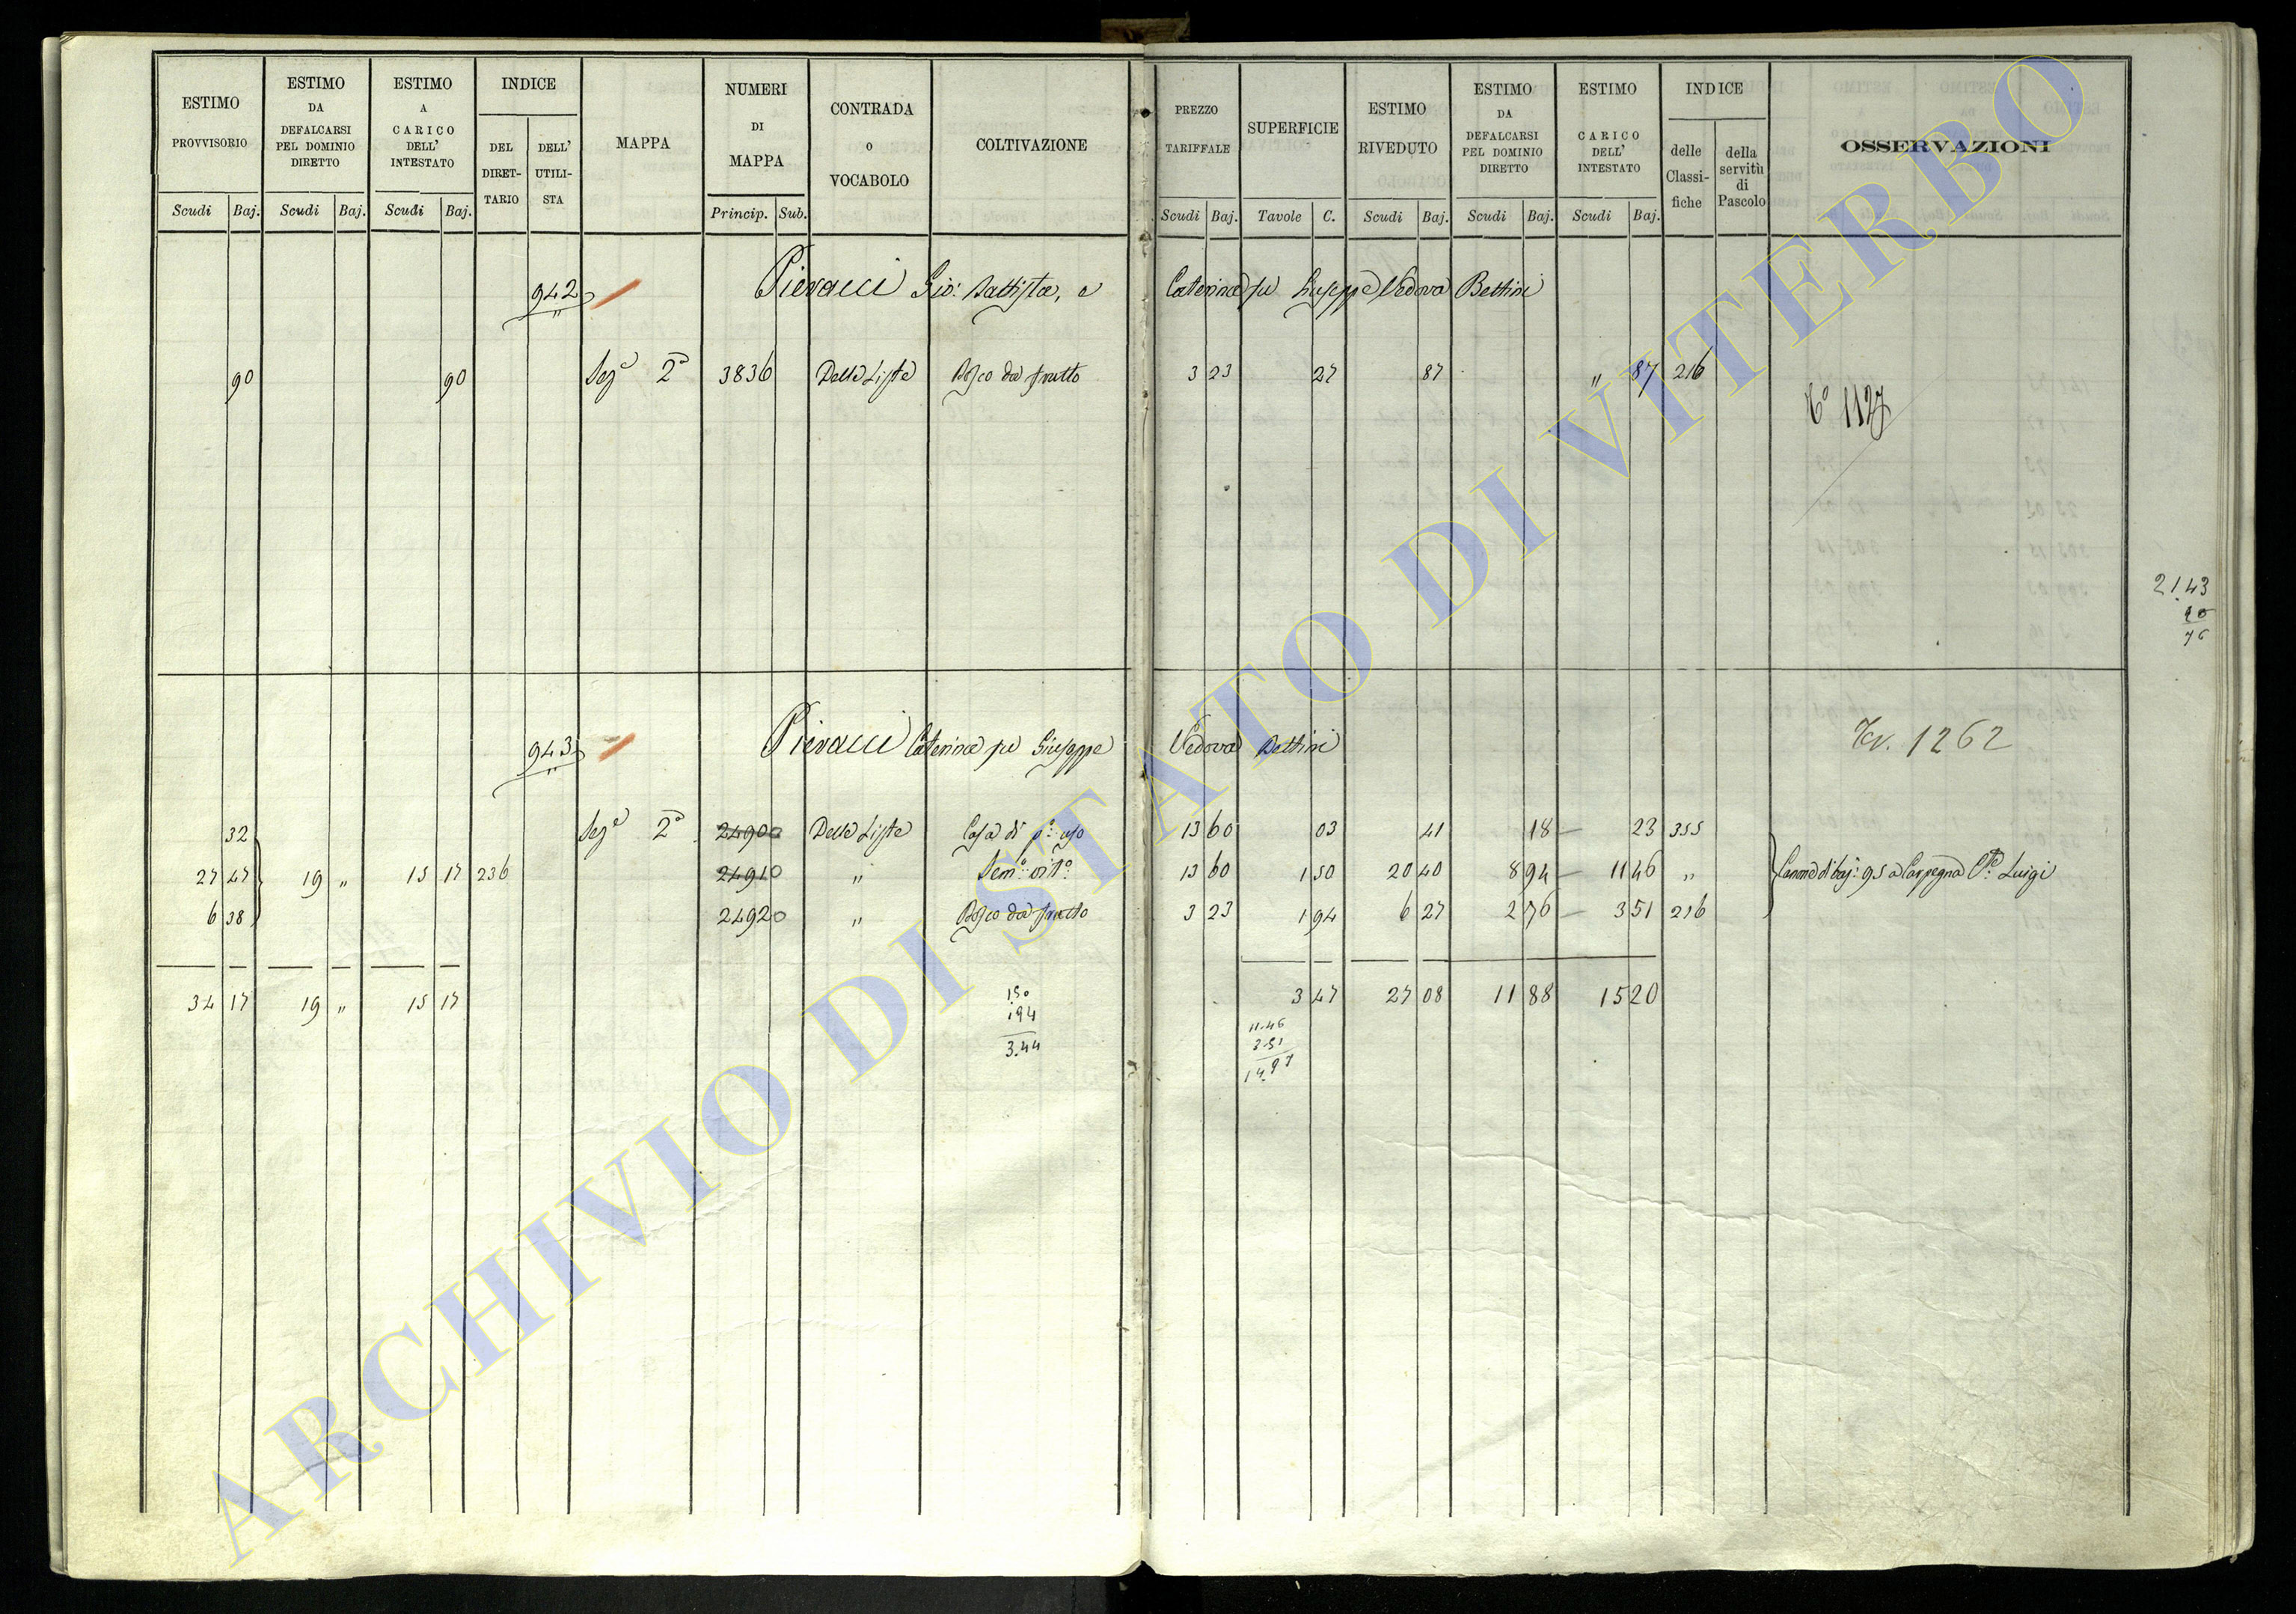 ESTIMO PROVVISORIO
ESTIMO DA DEFALCARSI PEL DOMINIO DIRETTO
ESTIMO A CARICO DELL' INTESTATO
INDICE
DEL DIRETTARIO
DELL' UTILISTA
MAPPA
NUMERI DI MAPPA
CONTRADA O VOCABOLO
COLTIVAZIONE
PREZZO TARIFFALE
SUPERFICIE
ESTIMO RIVEDUTO
ESTIMO DA DEFALCARSI PEL DOMINIO DIRETTO
ESTIMO CARICO DELL' INTESTATO
INDICE
delle Classifiche
della servitù di Pascolo
OSSERVAZIONI
Scudi Baj. Scudi Baj. Scudi Baj. Princip. Sub. Scudi Baj. Tavole C. Scudi Baj. Scudi Baj. Scudi Baj.
942 Pieracci Gio: Battista, e Caterina fu Giuseppe Vedova Bettini
90 90 Sez.e 2a 3836 Delle Liste Bosco da frutto 3 23 27 87 " 87 216
1127
21.43
943 Pieracci Caterina fu Giuseppe Vedova Bettini
1262
32 Sez.e 2a 2490 Delle Liste Casa di p.o uso 13 60 03 41 18 23 355
27 47 19 " 15 17 236 2491 " Sem.o vit.o 13 60 1 50 20 40 8 94 11 46 " Canone di baj: 95 a Carpegna Luigi
6 38 2492 " Bosco da frutto 3 23 1 94 6 27 2 76 3 51 216
34 17 19 " 15 17 3 47 27 08 11 88 15 20
1.50
1.94
3.44
11.46
3.51
14.97
ARCHIVIO DI STATO DI VITERBO